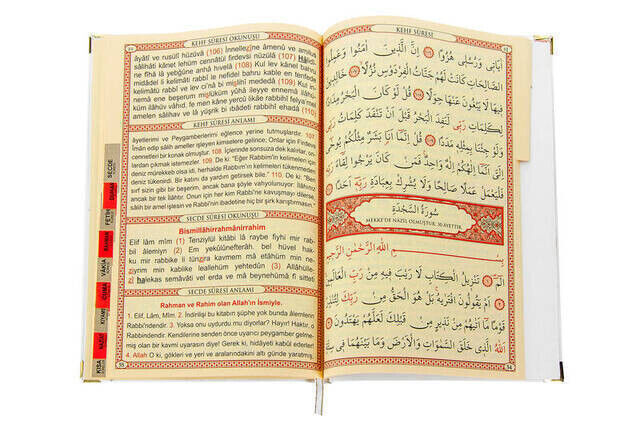 KEHF SÛRESİ OKUNUŞU
âyâtî ve rusulî hüzüvâ (106) İnnellezîne âmenû ve amilus
sâlihâti kânet lehüm cennâtül firdevsi nüzülâ (107) Hâlidî-
ne fîhâ lâ yebğûne anhâ hıvelâ (108) Kul lev kânel bahru
midâdel li kelimâti rabbî le nefidel bahru kable en tenfede
kelimâtü rabbî ve lev ci'nâ bi mislihî mededâ (109) Kul in-
nemâ ene beşerum mislüküm yûhâ ileyye ennemâ ilâhü-
küm ilâhüv vâhıd, fe men kâne yercû likâe rabbihî felya'mel
amelen sâlihav ve lâ yüşrik bi ıbâdeti rabbihî ehadâ (110)
KEHF SÛRESİ ANLAMI
âyetlerimi ve Peygamberlerimi eğlence yerine tutmuşlardır. 107.
İman edip salih ameller işleyen kimselere gelince; Onlar için Firdevs
cennetleri bir konak olmuştur. 108. İçlerinde sonsuza dek kalırlar, on-
lardan çıkmak istemezler. 109. De ki: "Eğer Rabbimin kelimeleri için
deniz mürekkep olsa idi, herhalde Rabbimin kelimeleri tükenmeden
deniz tükenirdi. Bir katını da yardım getirsek bile." 110. De ki: "Ben
sırf sizin gibi bir beşerim, ancak bana şöyle vahyolunuyor: İlâhınız
ancak bir tek ilâhtır. Onun için her kim Rabbi'ne kavuşmayı dilerse
salih amel işlesin ve Rabbi'ne ibadetine hiç bir şirk karıştırmasın.
SECDE SÛRESİ OKUNUŞU
Bismillâhirrahmânirrahîm
Elif lâm mîm (1) Tenzîlül kitâbi lâ raybe fîhi mir rab-
bil âlemiyn (2) Em yekûlûnefterâh, bel hüvel hak-
ku mir rabbike li tünzira kavmem mâ etâhüm min ne-
ziyrim min kablike leallehüm yehtedûn (3) Allâhülle-
zî halekas semâvâti vel erda ve mâ beynehümâ fî sitteti
SECDE SÛRESİ ANLAMI
Rahman ve Rahim olan Allah'ın İsmiyle.
1. Elif, Lâm, Mîm. 2. İndirilişi bu kitabın şüphe yok bunda âlemlerin
Rabbi'ndendir. 3. Yoksa onu uydurdu mu diyorlar? Hayır! Haktır, o
Rabbindendir. Kendilerine senden önce uyarıcı peygamber gelme-
miş olan bir kavmi uyarasın diye! Gerek ki, hidâyeti kabûl ederler!
4. Allah O ki, gökleri ve yeri ve aralarındakini altı günde yaratmış,
SECDE
FETİH
VÂKIA
CUMA
KIYAME
KISA
KEHF SÛRESİ
اٰيَاتٖي وَرُسُلٖي هُزُوًا ﴿١٠٦﴾ اِنَّ الَّذٖينَ اٰمَنُوا وَعَمِلُوا
الصَّالِحَاتِ كَانَتْ لَهُمْ جَنَّاتُ الْفِرْدَوْسِ نُزُلًا ﴿١٠٧﴾ خَالِدٖينَ
فٖيهَا لَا يَبْغُونَ عَنْهَا حِوَلًا ﴿١٠٨﴾ قُلْ لَوْ كَانَ الْبَحْرُ مِدَادًا
لِكَلِمَاتِ رَبّٖي لَنَفِدَ الْبَحْرُ قَبْلَ اَنْ تَنْفَدَ كَلِمَاتُ رَبّٖي
وَلَوْ جِئْنَا بِمِثْلِهٖ مَدَدًا ﴿١٠٩﴾ قُلْ اِنَّمَا اَنَا بَشَرٌ مِثْلُكُمْ يُوحٰى
اِلَيَّ اَنَّمَا اِلٰهُكُمْ اِلٰهٌ وَاحِدٌ فَمَنْ كَانَ يَرْجُوا لِقَاءَ رَبِّهٖ
فَلْيَعْمَلْ عَمَلًا صَالِحًا وَلَا يُشْرِكْ بِعِبَادَةِ رَبِّهٖ اَحَدًا
سُورَةُ السَّجْدَةِ
MEKKE'DE NAZİL OLMUŞTUR. 30 AYETTİR.
بِسْمِ اللّٰهِ الرَّحْمٰنِ الرَّحٖيمِ
الٓمٓ ﴿١﴾ تَنْزٖيلُ الْكِتَابِ لَا رَيْبَ فٖيهِ مِنْ رَبِّ الْعَالَمٖينَ
اَمْ يَقُولُونَ افْتَرٰيهُ بَلْ هُوَ الْحَقُّ مِنْ رَبِّكَ لِتُنْذِرَ
قَوْمًا مَا اَتٰيهُمْ مِنْ نَذٖيرٍ مِنْ قَبْلِكَ لَعَلَّهُمْ يَهْتَدُونَ ﴿٣﴾
اَللّٰهُ الَّذٖي خَلَقَ السَّمٰوَاتِ وَالْاَرْضَ وَمَا بَيْنَهُمَا فٖي